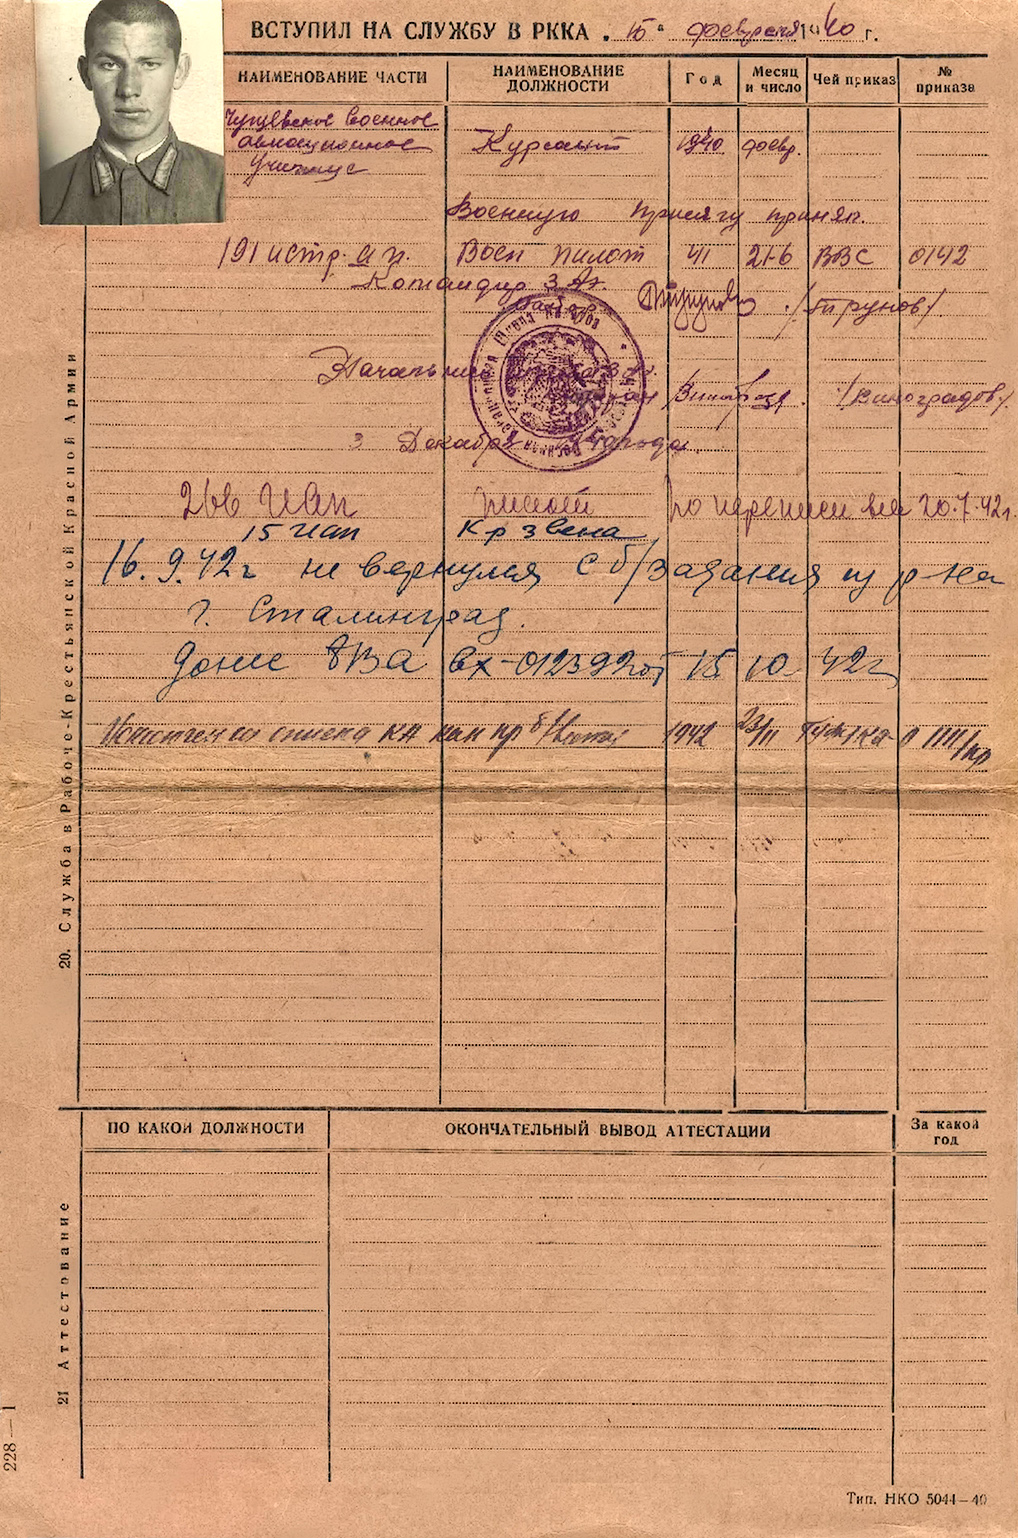 ВСТУПИЛ НА СЛУЖБУ В РККА „ 15 “ февраля 1940 г.
НАИМЕНОВАНИЕ ЧАСТИ НАИМЕНОВАНИЕ ДОЛЖНОСТИ Год Месяц и число Чей приказ № приказа
Чугуевское военное
авиационное Курсант 1940 февр.
училище
Военную присягу принял.
191 истр. ап. Воен пилот 41 21-6 ВВС 0142
Командир 3 Аэ.
/Трунов/
Начальник
/Виноградов/
3 Декабря года
266 ИАП пилот по переписи на 20.7.42г.
15 иап к-р звена
16.9.42г не вернулся с б/задания из р-на
г. Сталинград.
донес 8ВА вх-012392от 15 10 42г
1942 23/11
20. Служба в Рабоче-Крестьянской Красной Армии
ПО КАКОЙ ДОЛЖНОСТИ ОКОНЧАТЕЛЬНЫЙ ВЫВОД АТТЕСТАЦИИ За какой год
21 Аттестование
228—1
Тип. НКО 5044—40